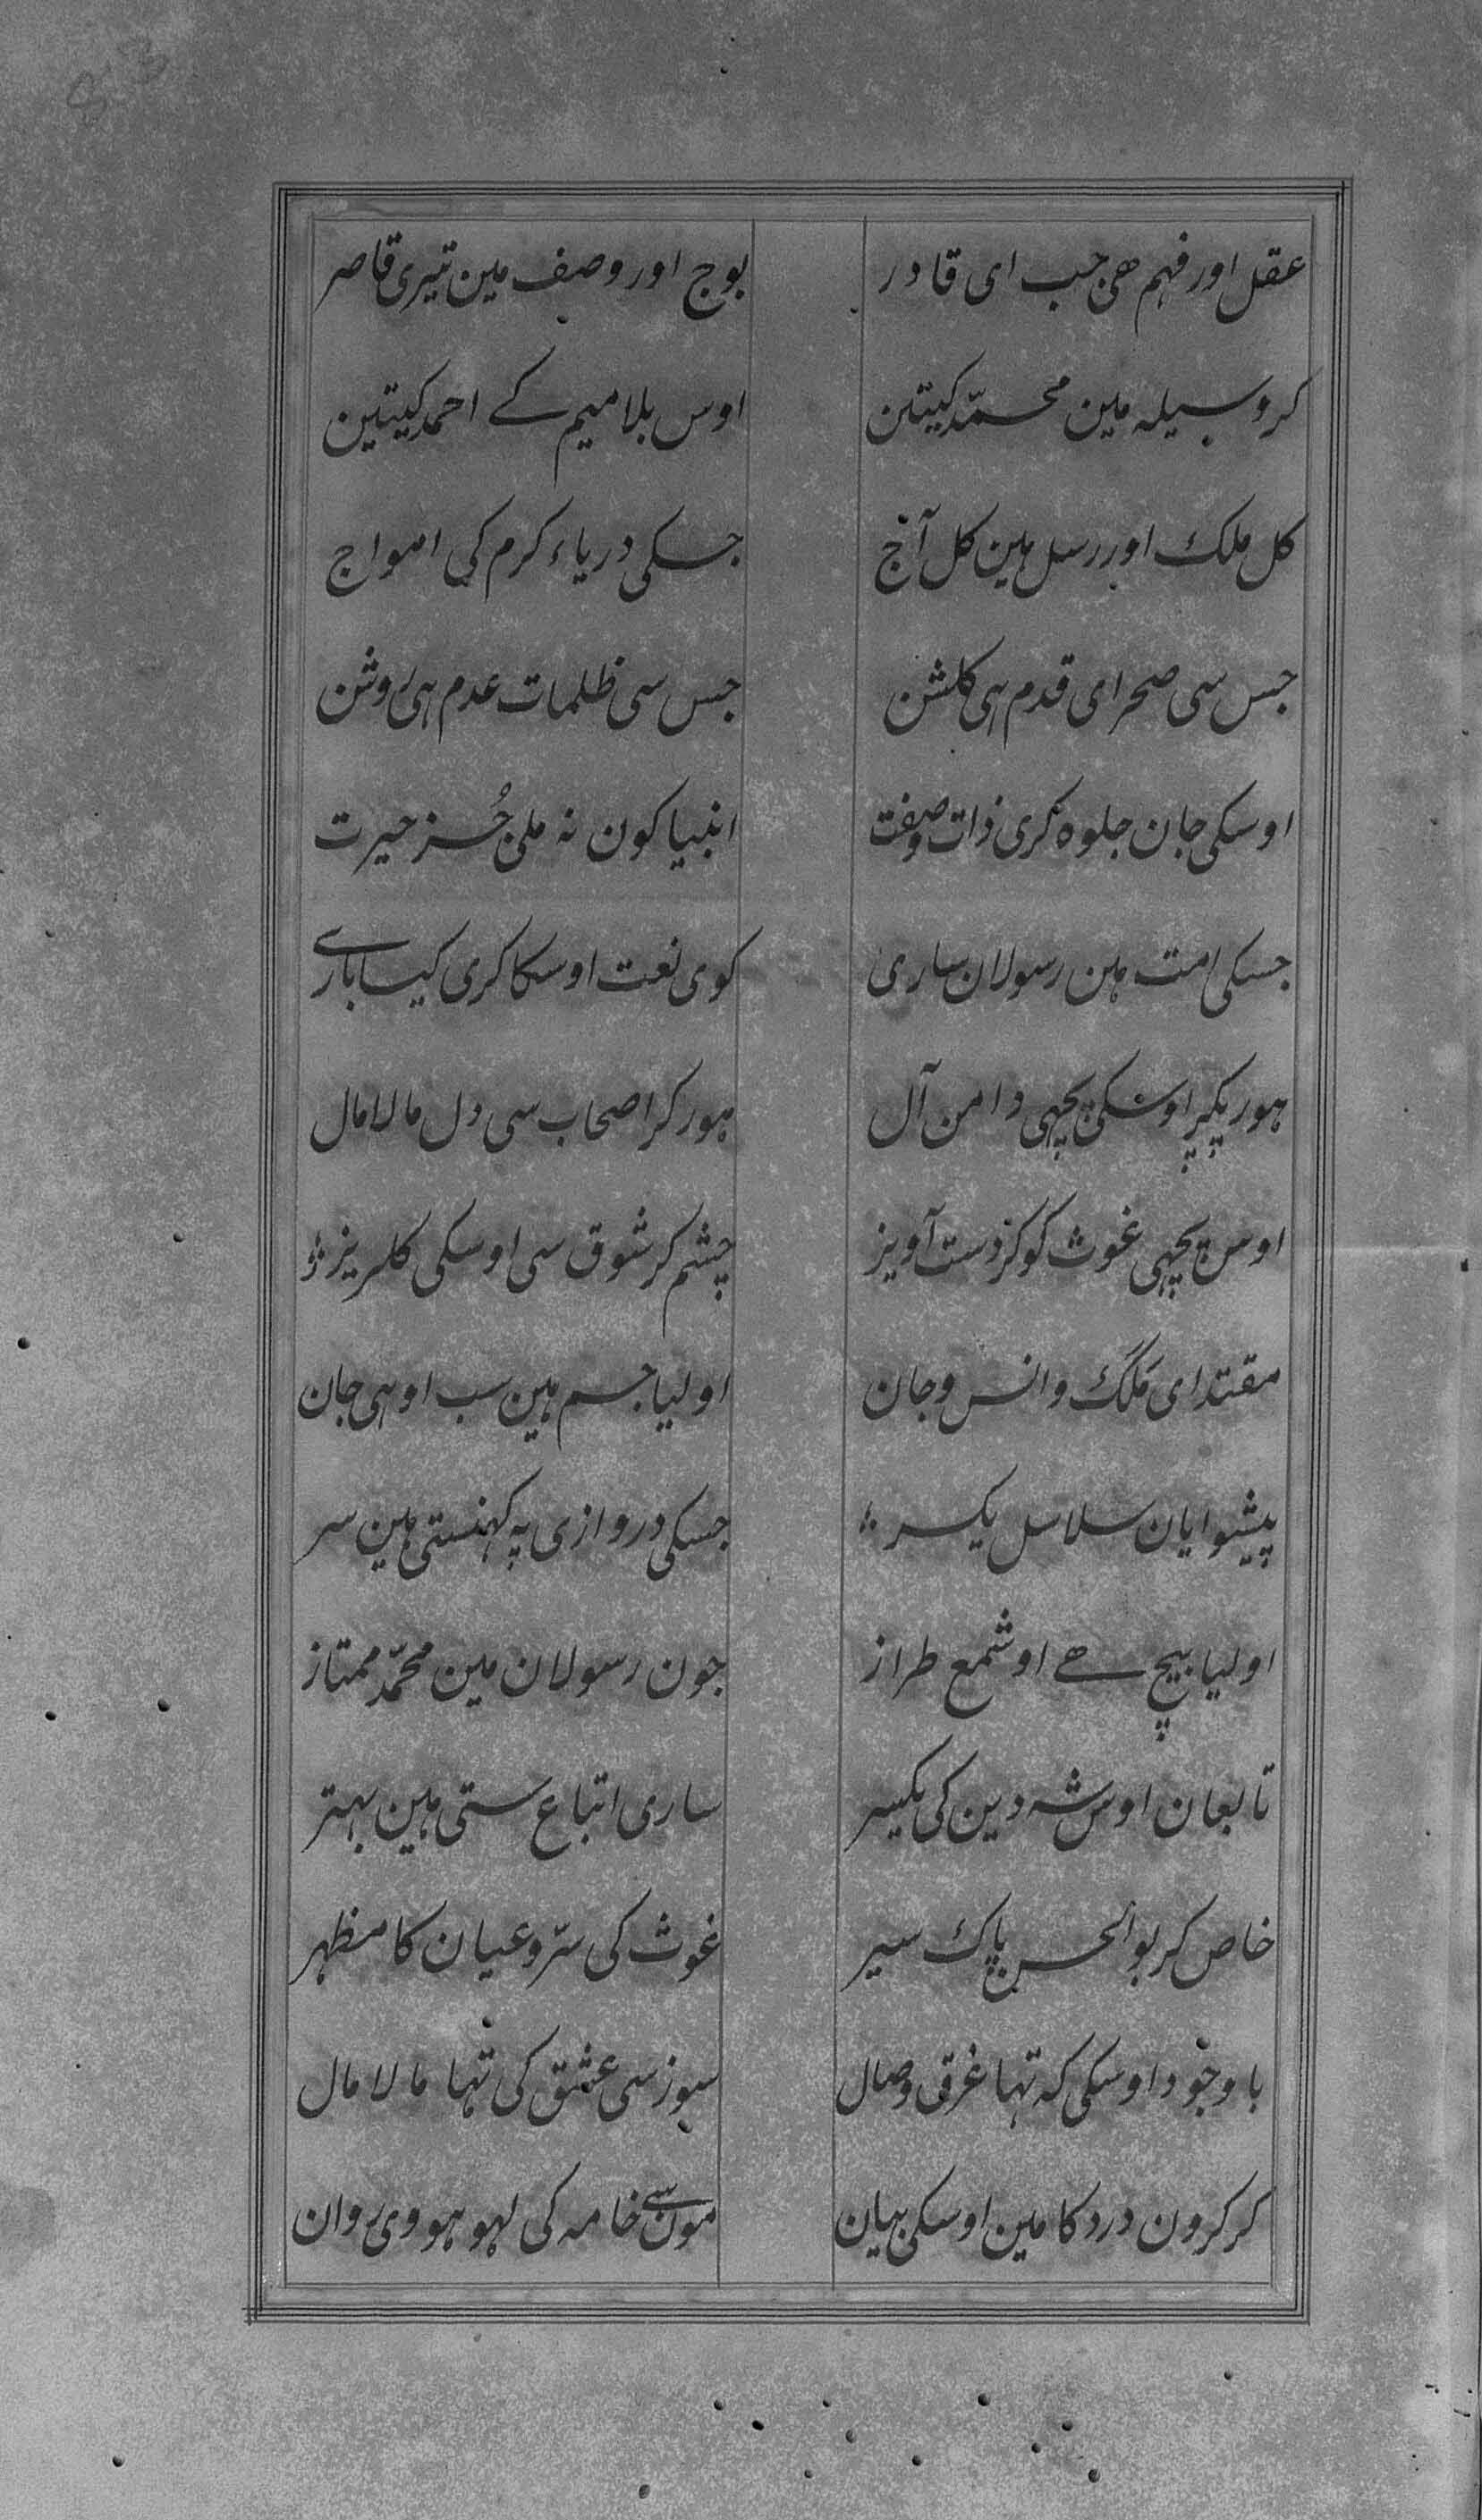 عقل اور فہم ھی جب ای قادر بوج اور وصف مین تیری قاصر
کر وسیلہ مین محمّد کیتئن اوس بلا میم کے احمد کیتین
کل ملک اور رسل ہین کل آج جسکی دریاء کرم کی امواج
جس سی صحرای قدم ہی کلشن جس سی ظلمات عدم ہی روشن
اوسکی جان جلوہ کری ذات و صفت انبیا کون نہ ملی جُز حیرت
جسکی امت ہین رسولان ساری کوی نعت اوسکا کری کیا بارے
ہور پکڑ اوسکی پچہی دامن آل ہور کر اصحاب سی دل مالامال
اوس پچہی غوث کو کر دست آویز چشم کر شوق سی اوسکی کلریز
مقتدای مَلَک و انس و جان اولیا جسم ہین سب او ہی جان
پیشوایان سلاسل یکسر جسکی دروازی پہ کہنستی ہین سر
اولیا بیچ ھے او شمع طراز جون رسولان مین محمّد ممتاز
تابعان اوس شہ دین کی یکسر ساری اتباع ستی ہین بہتر
خاص کر بوالحسن پاک سیر غوث کی سرّ و عیان کا مظہر
باوجود اوسکی کہ تہا غرق وصال سوز سی عشق کی تہا مالامال
کر کرون درد کا مین اوسکی بیان مون سے خامہ کی لہو ہووی روان